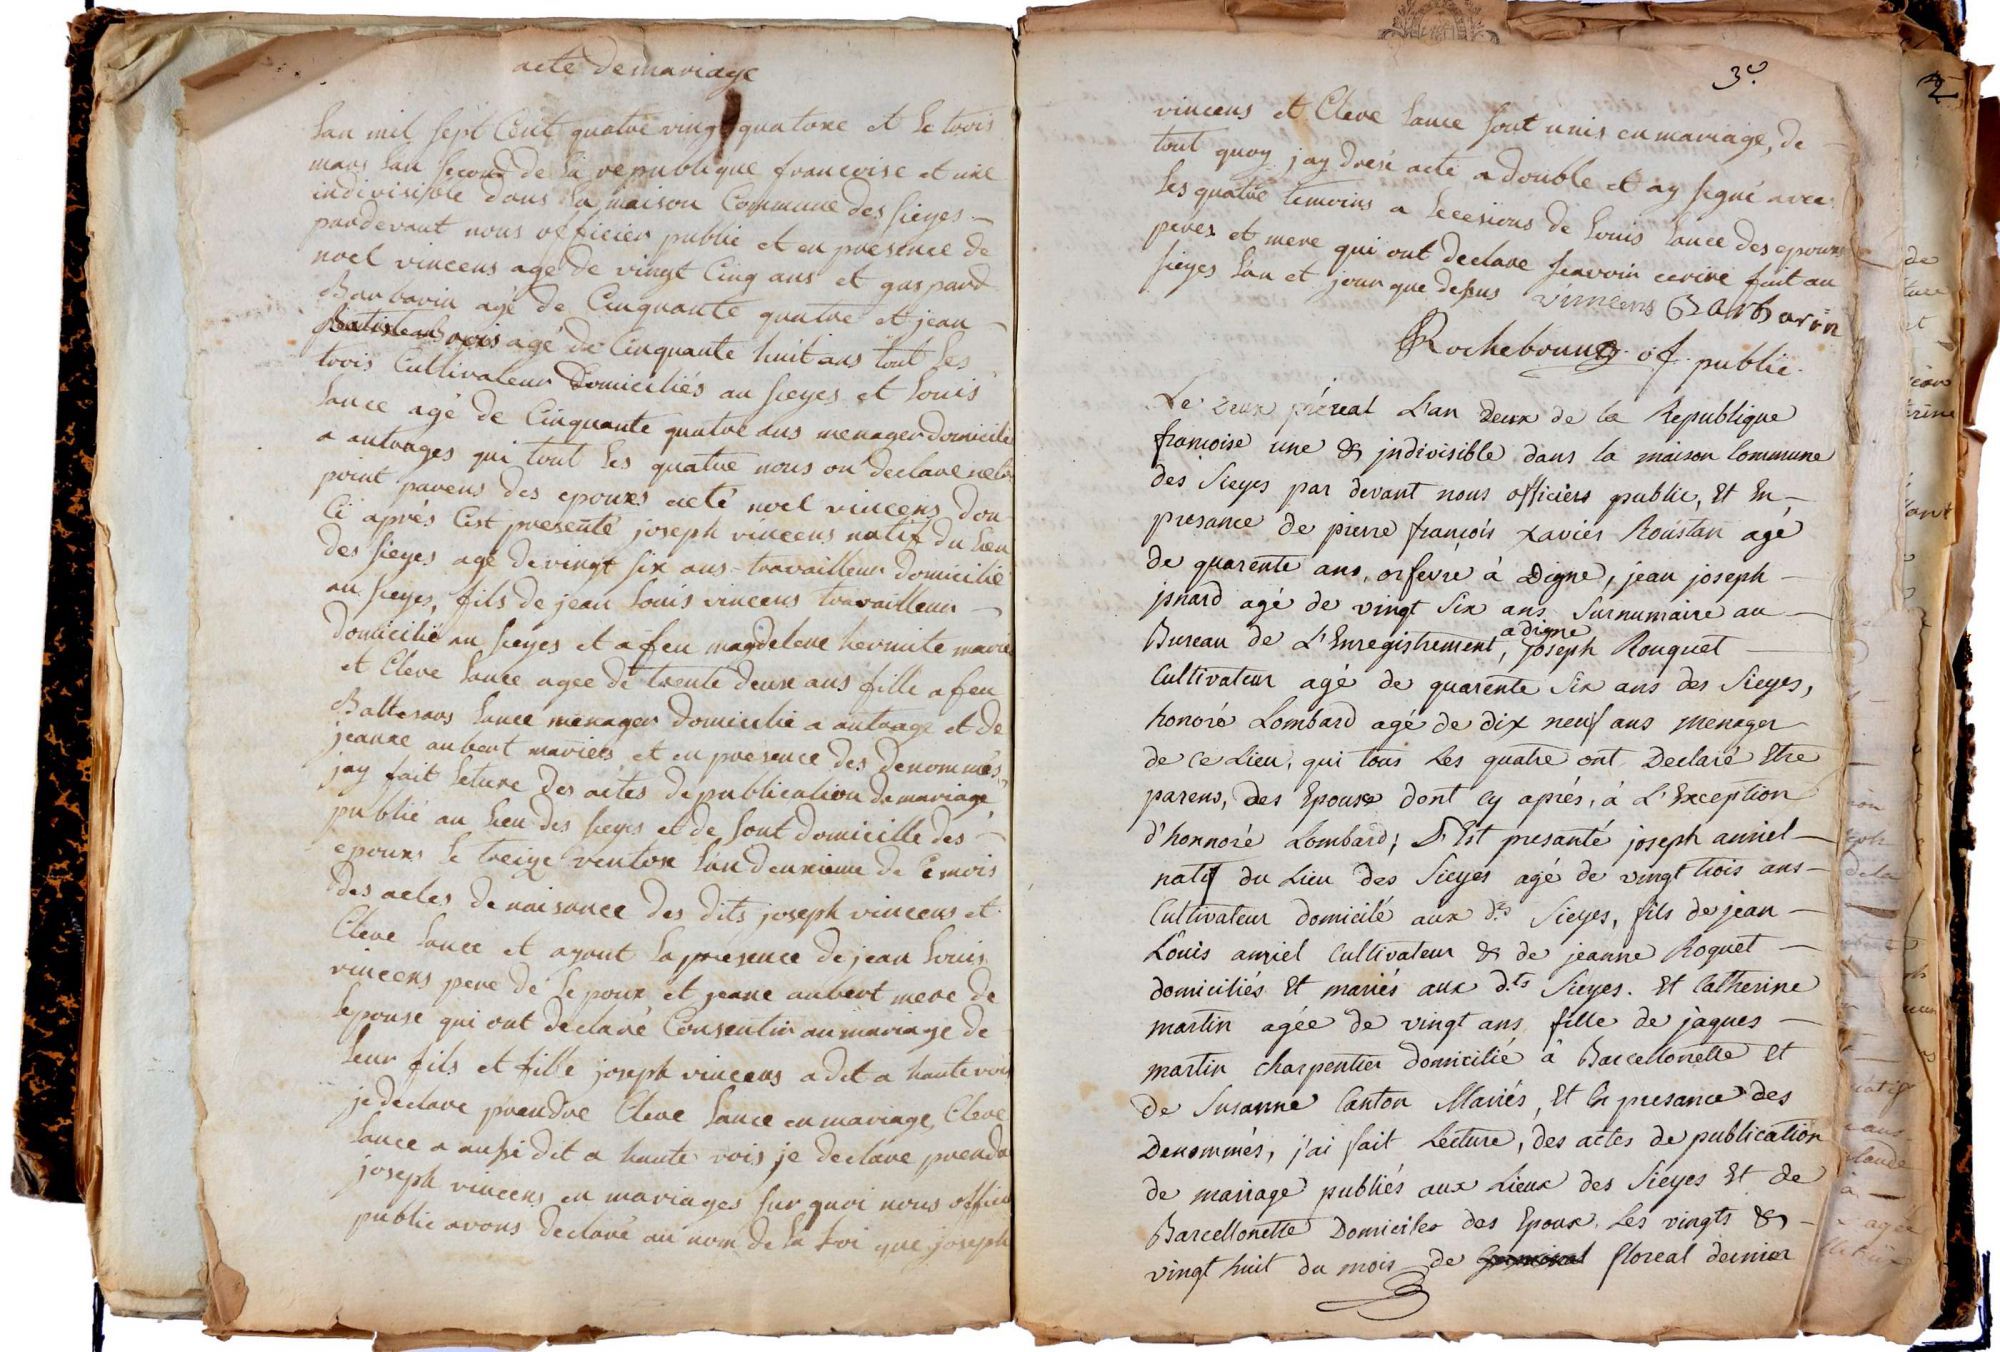 acte de mariage
Lan mil sept Cent quatre vingt quatorze et le trois
mars lan second de la republique francoise et une
indivisible dans la maison Commune des sieyes
pardevant nous officier public et en presence de
noel vincens agé de vingt Cinq ans et gaspard
Barbarin agé de Cinquante quatre et jean
agé de Cinquante huit ans tout les
trois Cultivateur Domiciliés au sieyes et Louis
Lance agé de Cinquante quatre ans menager domicilié
a antrages qui tout les quatre nous on declare netre
point parens des epoux noel vincens don
Ci aprés C'est presenté joseph vincens natif du lieu
des sieyes agé de vingt six ans travailleur domicilié
au sieyes, fils de jean Louis vincens travailleur
domicilié au sieyes et a feu magdelene hermite mariés
et Cleve Lance agee de trente deux ans fille a feu
Baltesans Lance menager domicilié a antrage et de
jeanne aubert mariés, et en presence des denommés
jay fait leture des actes de publication de mariage
publié au lieu des sieyes et de sont domicille des
epoux le treize ventose lan deuxieme de Ce mois
des actes de naisance des dits joseph vincens et
Cleve Lance et ayant la presence de jean Louis
vincens pere de lepoux et jeane aubert mere de
lepouse qui ont declaré Consentir au mariage de
leur fils et fille joseph vincens a dit a haute voix
je declare prendre Cleve Lance en mariage, Cleve
Lance a aussi dit a haute vois je declare prendre
joseph vincens en mariages sur quoi nous officier
public avons declaré au nom de la loi que joseph
3e.
2
vincens et Cleve Lance sont unis en mariage, de
tout quoy jay dresé acte a double et ay signé avec
les quatre temoins a lecesions de Louis Lance des epoux
peres et mere qui ont declare scavoir ecrire fait au
sieyes lan et jour que desus vincens Barbarin
Rochebrune of. public.
Le Deux prereal L'an Deux de la Republique
francoise une & jndivisible dans la maison Commune
des Sieyes par devant nous officiers public, Et En
presance de pierre françois xavier Roustan agé
de quarente ans, orfevre à Digne, jean joseph
jnard agé de vingt Six ans Surnumaire au
Bureau de L'Enregistrement, a digne joseph Rouquet
Cultivateur agé de quarente Six ans des Sieyes,
honoré Lombard agé de dix neuf ans menager
de ce Lieu, qui tous Les quatre ont Declaré Etre
parens, des Epoux dont Cy aprés, à L'Exception
d'honnoré Lombard; S'Est presanté joseph auriel
natif du Lieu des Sieyes agé de vingt trois ans
Cultivateur domicilé aux dts Sieyes, fils de jean
Louis auriel Cultivateur & de jeanne Roquet
domiciliés Et mariés aux dts Sieyes. Et Catherine
martin agée de vingt ans fille de jaques
martin charpentier domicilié à Barcellonette Et
de Susanne Canton Mariés, Et En presance des
Denommés, j'ai fait Lecture, des actes de publication
de mariage publiés aux Lieux des Sieyes Et de
Barcellonette Domiciles des Epoux, Les vingts &
vingt huit du mois de germinal floreal dernier